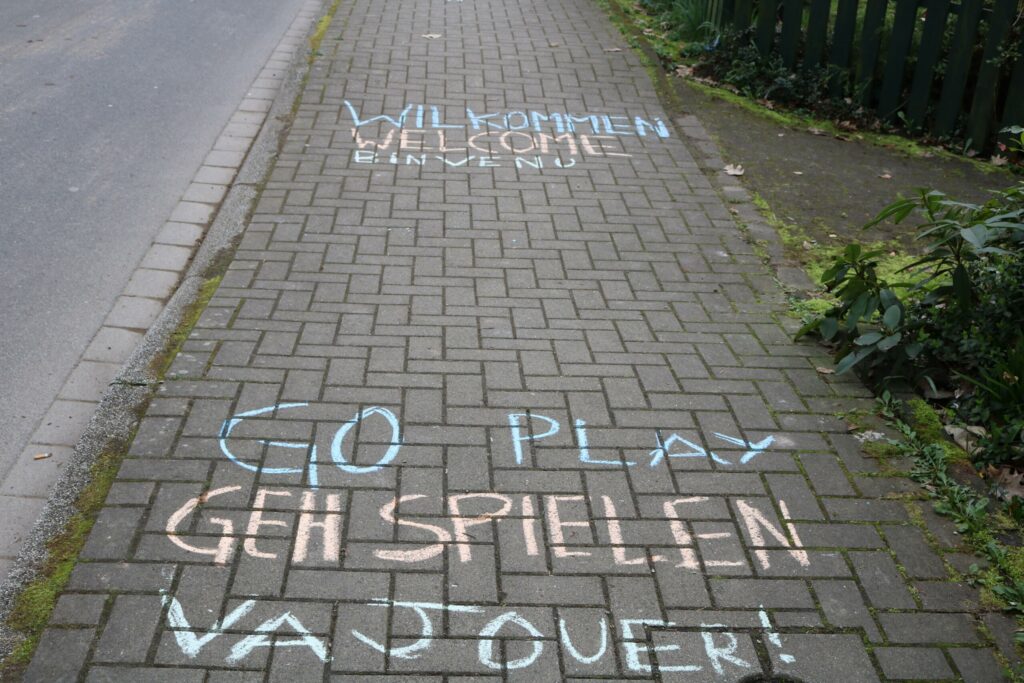 WILKOMMEN
WELCOME
BINVENU
GO PLAY
GEH SPIELEN
VA JOUER!